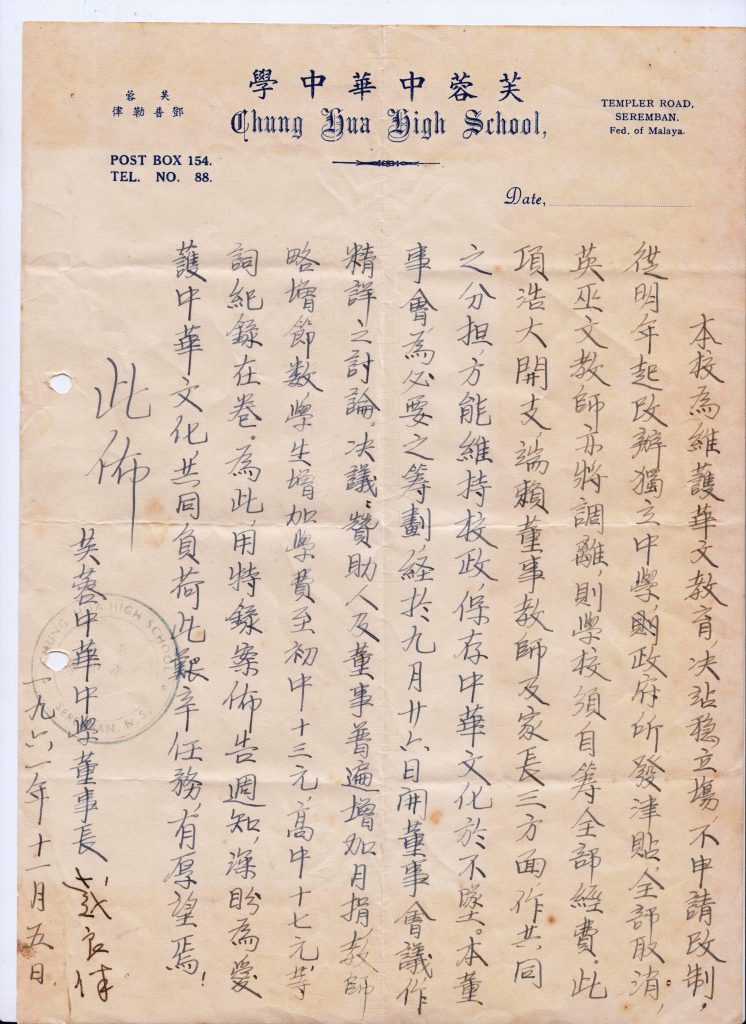 學中華中蓉芙
Chung Hua High School,
蓉芙
律勒普鄧
POST BOX 154.
TEL. NO. 88.
TEMPLER ROAD,
SEREMBAN.
Fed. of Malaya.
Date,
本校為維護華文教育，决站稳立場，不申請改制，
從明年起改辦獨立中學，則政府所發津貼，全部取消，
英巫文教師亦將調離，則學校須自筹全部經費。此
項浩大開支，端賴董事教師及家長三方面作共同
之分担，方能維持校政，保存中華文化於不墜。本董
事會為必要之筹劃，経於九月廿六日開董事會議作
精詳之討論。决議：贊助人及董事普遍增加月捐，教師
略增節数，學生增加學費至初中十三元，高中十七元等
詞紀錄在卷。為此，用特錄案佈告週知，深盼為愛
護中華文化，共同負荷此艱辛任務，有厚望焉！
此佈
芙蓉中華中學董事長
一九六一年十一月五日
CHUNG HUA HIGH SCHOOL
SEREMBAN, N. S.